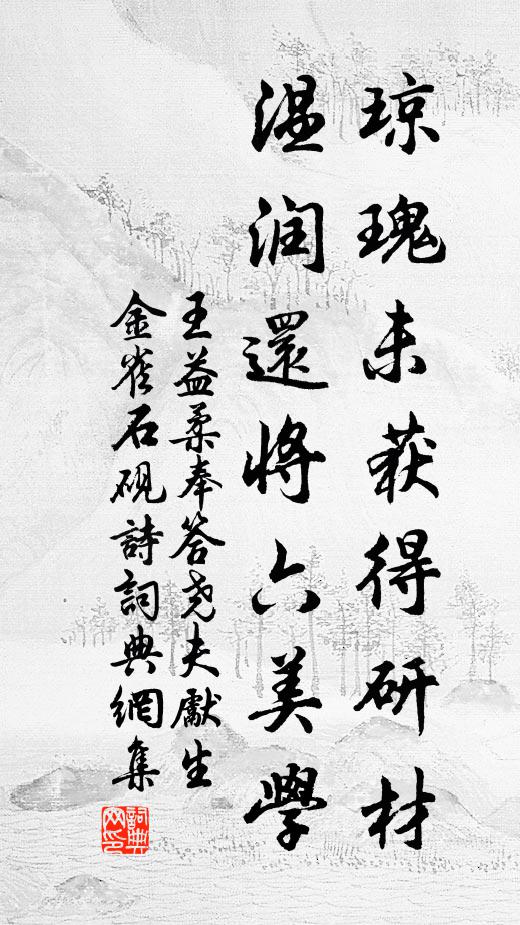 琼瑰未获得研材
温润還将六美學
王益柔奉答尧夫獻生
金雀石硯詩詞典網集
詞典网印